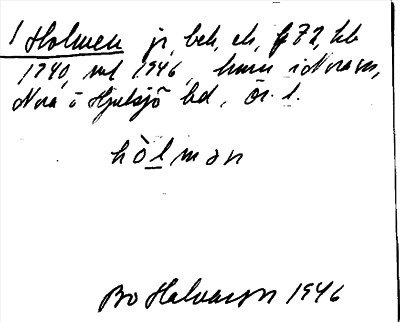 1 Holmen jr, beb, els, f 72, kb
1740, ml 1946, hmn i Nora sn,
Nora o Hjulsjö bd, Ör. l.
hòlman
Bo Halvarson 1946